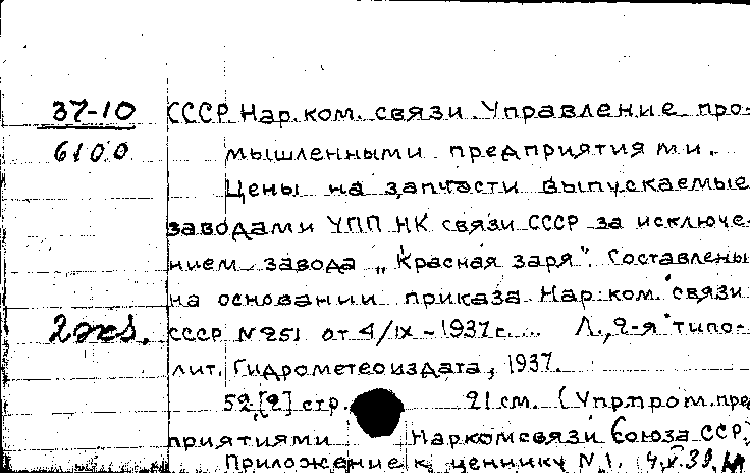 37-10 СССР Нар.ком. связи. Управление про-
6100 мышленными предприятиями.
Цены на запчасти выпускаемые
заводами УПП НК связи СССР за исключе-
нием завода „Красная заря". Составлены
на основании приказа Нар.ком. связи
2 экз. СССР №251 от 4/IX-1937г. ... Л., 2-я типо-
лит. Гидрометеоиздата, 1937.
52,[2] стр. 21 см. (Упр.пром.пред
приятиями Наркомсвязи Союза ССР.
Приложение к ценнику №1.